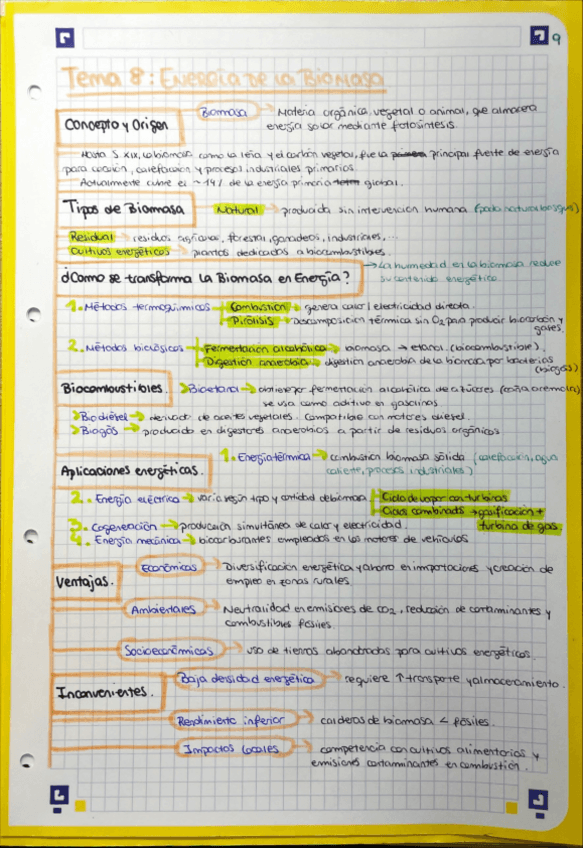 9
Tema 8: Energía de la Biomasa
Concepto y Origen
Biomasa → Materia orgánica, vegetal o animal, que almacena
energía solar mediante fotosíntesis.
Hasta S XIX, la biomasa como la leña y el carbón vegetal, fue la principal fuente de energía
para cocción, calefacción y procesos industriales primarios.
Actualmente cubre el ~14% de la energía primaria global.
Tipos de Biomasa
Natural → producida sin intervención humana (poda natural bosques)
Residual → residuos agrícolas, forestal, ganaderos, industriales,...
Cultivos energéticos → plantas dedicadas a biocombustibles.
¿Como se transforma la Biomasa en Energía?
→ La humedad en la biomasa reduce
su contenido energético.
1. Métodos termoquímicos → Combustión → genera calor/electricidad directa.
Pirólisis → descomposición térmica sin O2 para producir biocarbón y
gases.
2. Métodos biológicos → Fermentación alcohólica → biomasa → etanol (biocombustible).
Digestión anaerobia → digestión anaerobia de la biomasa por bacterias
(biogás)
Biocombustibles.
> Bioetanol → fermentación alcohólica de azúcares (caña
se usa como aditivo en gasolinas.
> Biodiésel → derivado de aceites vegetales. Compatible con motores diésel.
> Biogás → producido en digestores anaerobios a partir de residuos orgánicos
Aplicaciones energéticas.
1. Energía térmica → combustión biomasa sólida (calefacción, agua
caliente, procesos industriales)
2. Energía eléctrica → varía según tipo y cantidad de biomasa
Ciclo de vapor con turbinas
Ciclos combinados → gasificación +
turbina de gas
3. Cogeneración → producción simultánea de calor y electricidad.
4. Energía mecánica → biocarburantes empleados en los motores de vehículos
Ventajas.
Económicas → Diversificación energética y ahorro en importaciones y creación de
empleo en zonas rurales.
Ambientales → Neutralidad en emisiones de CO2, reducción de contaminantes y
combustibles fósiles.
Socioeconómicas → uso de tierras abandonadas para cultivos energéticos.
Inconvenientes.
Baja densidad energética → requiere ↑ transporte y almacenamiento.
Rendimiento inferior → calderas de biomasa < fósiles.
Impactos locales → competencia con cultivos alimentarios y
emisiones contaminantes en combustión.